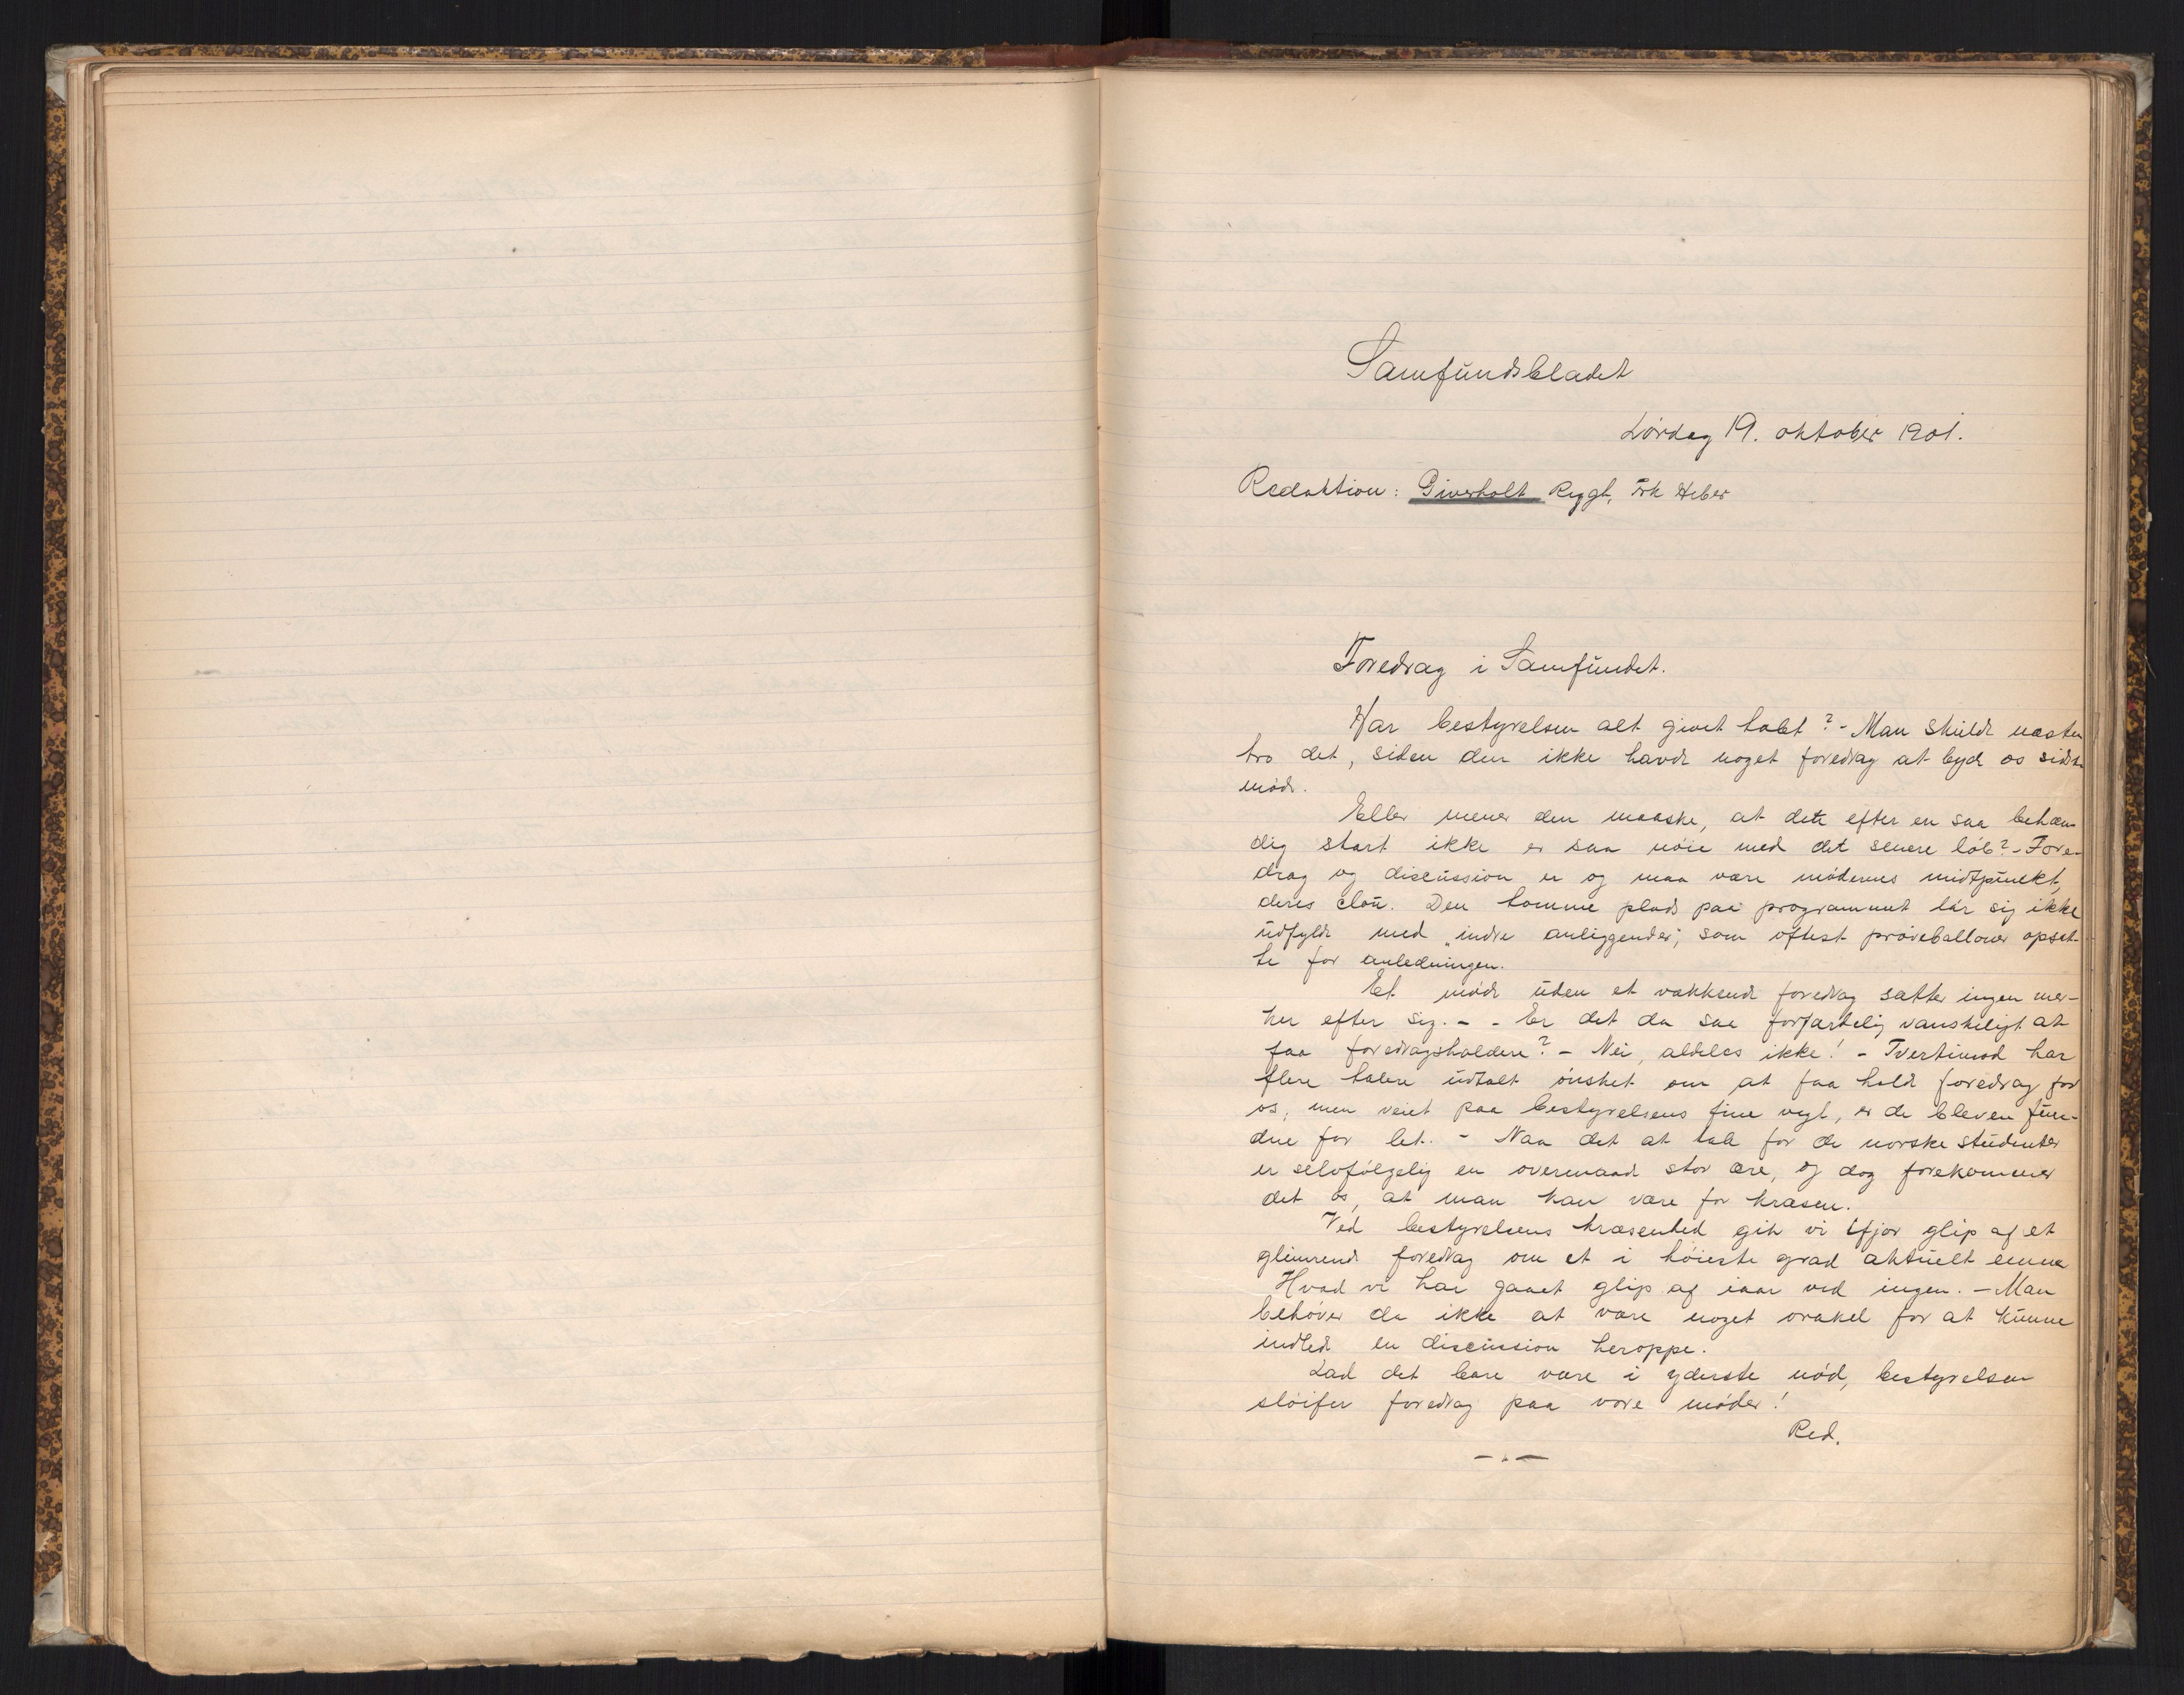 Samfundsbladet
Lørdag 19. oktober 1901.
Redaktion: Giverholt Rygh, Frk Heber
Foredrag i Samfundet.
Har bestyrelsen alt givet tabt? - Man skulde næsten
tro det, siden den ikke havde noget foredrag at byde os sidste
møde.
Eller mener den maaske, at det efter en saa behæn-
dig start ikke er saa nøie med det senere løb? - Fore-
drag og discussion er og maa være mødernes midtpunkt,
deres clou. Den tomme plads paa programmet lar sig ikke
udfylde med „indre anliggender", som oftest prøveballoner opsat-
te for anledningen.
Et møde uden et vækkende foredrag sætter ingen mer-
ker efter sig. - - Er det da saa forfærdelig vanskeligt at
faa foredragsholdere? - Nei, aldeles ikke! - Tvertimod har
flere talere udtalt ønsket om at faa holde foredrag for
os, men veiet paa bestyrelsens fine vegt, er de bleven fun-
dne for let. - Naa det at tale for de norske studenter
er selvfølgelig en overmaade stor ære, og dog forekommer
det os, at man kan være for kræsen.
Ved bestyrelsens kræsenhed gik vi ifjor glip af et
glimrende foredrag om et i høieste grad aktuelt emne
Hvad vi har gaaet glip af iaar ved ingen. - Man
behøver da ikke at være noget orakel for at kunne
indlede en discussion heroppe.
Lad det bare være i yderste nød, bestyrelsen
sløifer foredrag paa vore møder!
Red.